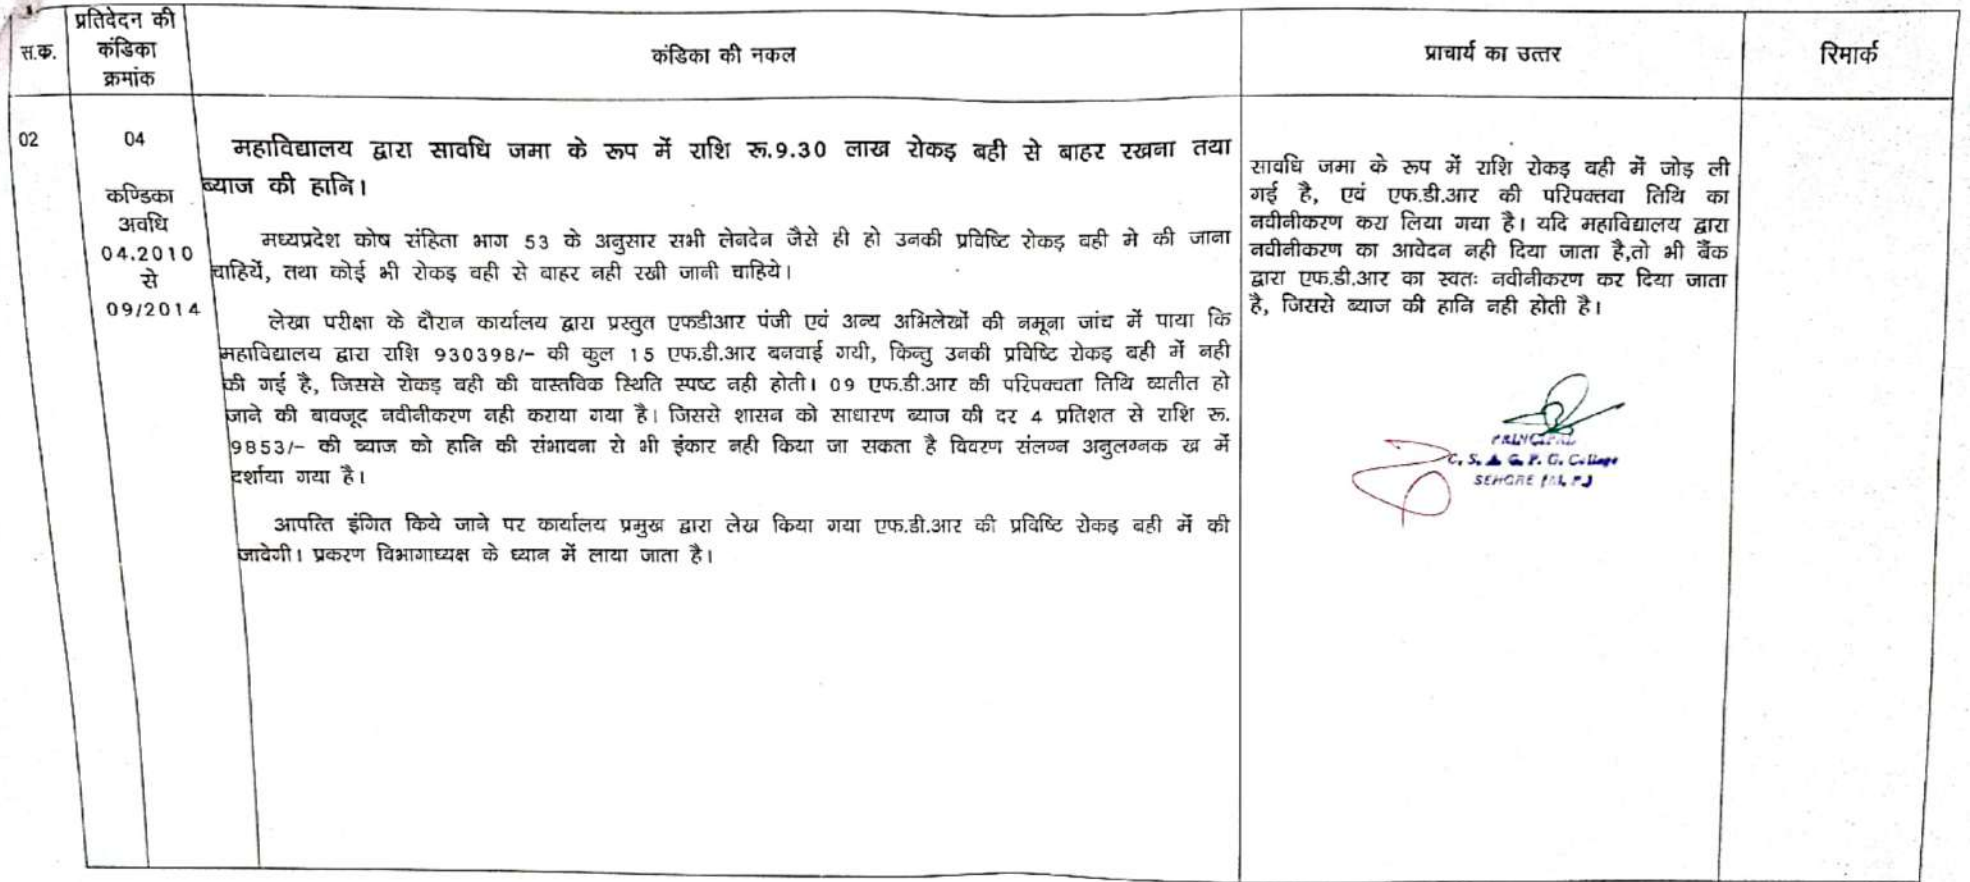 प्रतिवेदन की
स.क. कंडिका कंडिका की नकल प्राचार्य का उत्तर रिमार्क
क्रमांक
02
04
कण्डिका
अवधि
04.2010
से
09/2014
महाविद्यालय द्वारा सावधि जमा के रूप में राशि रू.9.30 लाख रोकड़ बही से बाहर रखना तथा
ब्याज की हानि।
मध्यप्रदेश कोष संहिता भाग 53 के अनुसार सभी लेनदेन जैसे ही हो उनकी प्रविष्टि रोकड़ बही मे की जाना
चाहियें, तथा कोई भी रोकड़ बही से बाहर नही रखी जानी चाहिये।
लेखा परीक्षा के दौरान कार्यालय द्वारा प्रस्तुत एफडीआर पंजी एवं अन्य अभिलेखों की नमूना जांच में पाया कि
महाविद्यालय द्वारा राशि 930398/- की कुल 15 एफ.डी.आर बनवाई गयी, किन्तु उनकी प्रविष्टि रोकड़ बही में नही
की गई है, जिससे रोकड़ बही की वास्तविक स्थिति स्पष्ट नही होती। 09 एफ.डी.आर की परिपक्वता तिथि व्यतीत हो
जाने की बावजूद नवीनीकरण नही कराया गया है। जिससे शासन को साधारण ब्याज की दर 4 प्रतिशत से राशि रू.
9853/- की ब्याज को हानि की संभावना रो भी इंकार नही किया जा सकता है विवरण संलग्न अनुलग्नक ख में
दर्शाया गया है।
आपत्ति इंगित किये जाने पर कार्यालय प्रमुख द्वारा लेख किया गया एफ.डी.आर की प्रविष्टि रोकड़ बही में की
जावेगी। प्रकरण विभागाध्यक्ष के ध्यान में लाया जाता है।
सावधि जमा के रूप में राशि रोकड़ बही में जोड़ ली
गई है, एवं एफ.डी.आर की परिपक्तवा तिथि का
नवीनीकरण करा लिया गया है। यदि महाविद्यालय द्वारा
नवीनीकरण का आवेदन नही दिया जाता है,तो भी बैंक
द्वारा एफ.डी.आर का स्वतः नवीनीकरण कर दिया जाता
है, जिससे ब्याज की हानि नही होती है।
PRINCIPAL
C. S. A. G. P. G. College
SEHORE (M. P.)